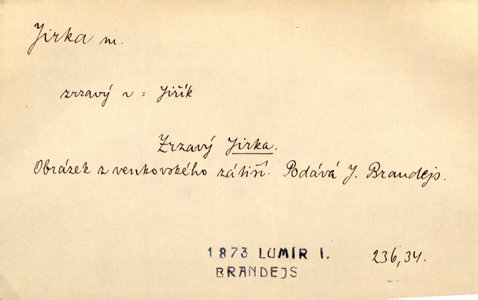 Jirka m.
zrzavý v = Jiřík
Zrzavý Jirka.
Obrázek z venkovského zátiší. Podává J. Brandejs.
1873 LUMÍR I. 236,34.
BRANDEJS